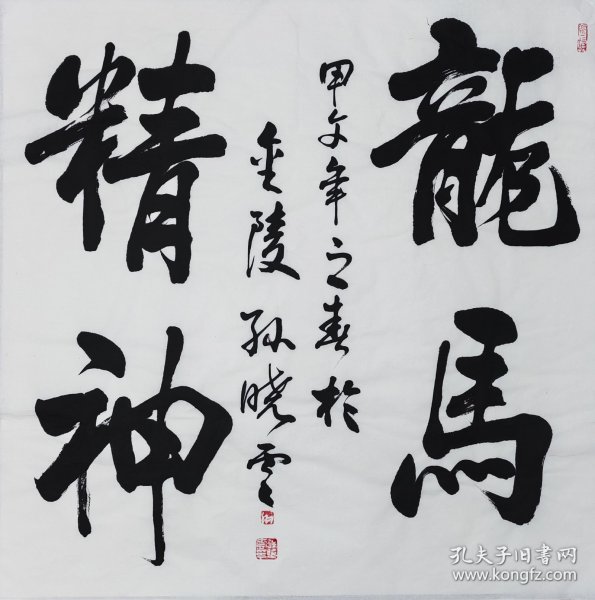 龍馬
精神
甲午年之春於
金陵孫曉雲
孔夫子旧書网
www.kongfz.com